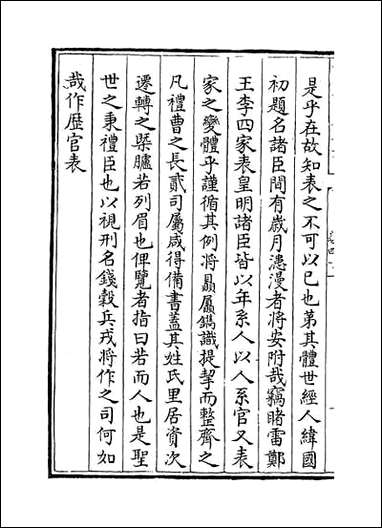 是乎在故知表之不可以已也第其體世經人緯國
初題名諸臣間有歲月漶漫者將安附哉竊睹雷鄭
王李四家表皇明諸臣皆以年系人以人系官又表
家之變體乎謹循其例將贔屭鐫識提挈而整齊之
凡禮曹之長貳司屬咸得備書蓋其姓氏里居資次
遷轉之槩臚若列眉也俾覽者指曰若而人也是聖
世之秉禮臣也以視刑名錢穀兵戎將作之司何如
哉作歷官表